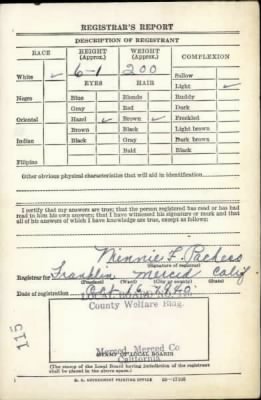 REGISTRAR'S REPORT
DESCRIPTION OF REGISTRANT
RACE HEIGHT (Approx.) WEIGHT (Approx.) COMPLEXION
White ✓ 6-1 200 Sallow
EYES HAIR Light ✓
Negro Blue Blonde Ruddy
Gray Red Dark
Oriental Hazel ✓ Brown ✓ Freckled
Brown Black Light brown
Indian Black Gray Dark brown
Bald Black
Filipino
Other obvious physical characteristics that will aid in identification
I certify that my answers are true; that the person registered has read or has had read to him his own answers; that I have witnessed his signature or mark and that all of his answers of which I have knowledge are true, except as follows:
Minnie F. Pacheco
(Signature of registrar)
Registrar for Franklin Merced Calif
(Precinct) (Ward) (City or county) (State)
Date of registration Oct. 16, 1940
LOCAL BOARD
County Welfare Bldg.
115
Merced Merced Co
California
STAMP OF LOCAL BOARD
(The stamp of the Local Board having jurisdiction of the registrant shall be placed in the above space.)
U. S. GOVERNMENT PRINTING OFFICE